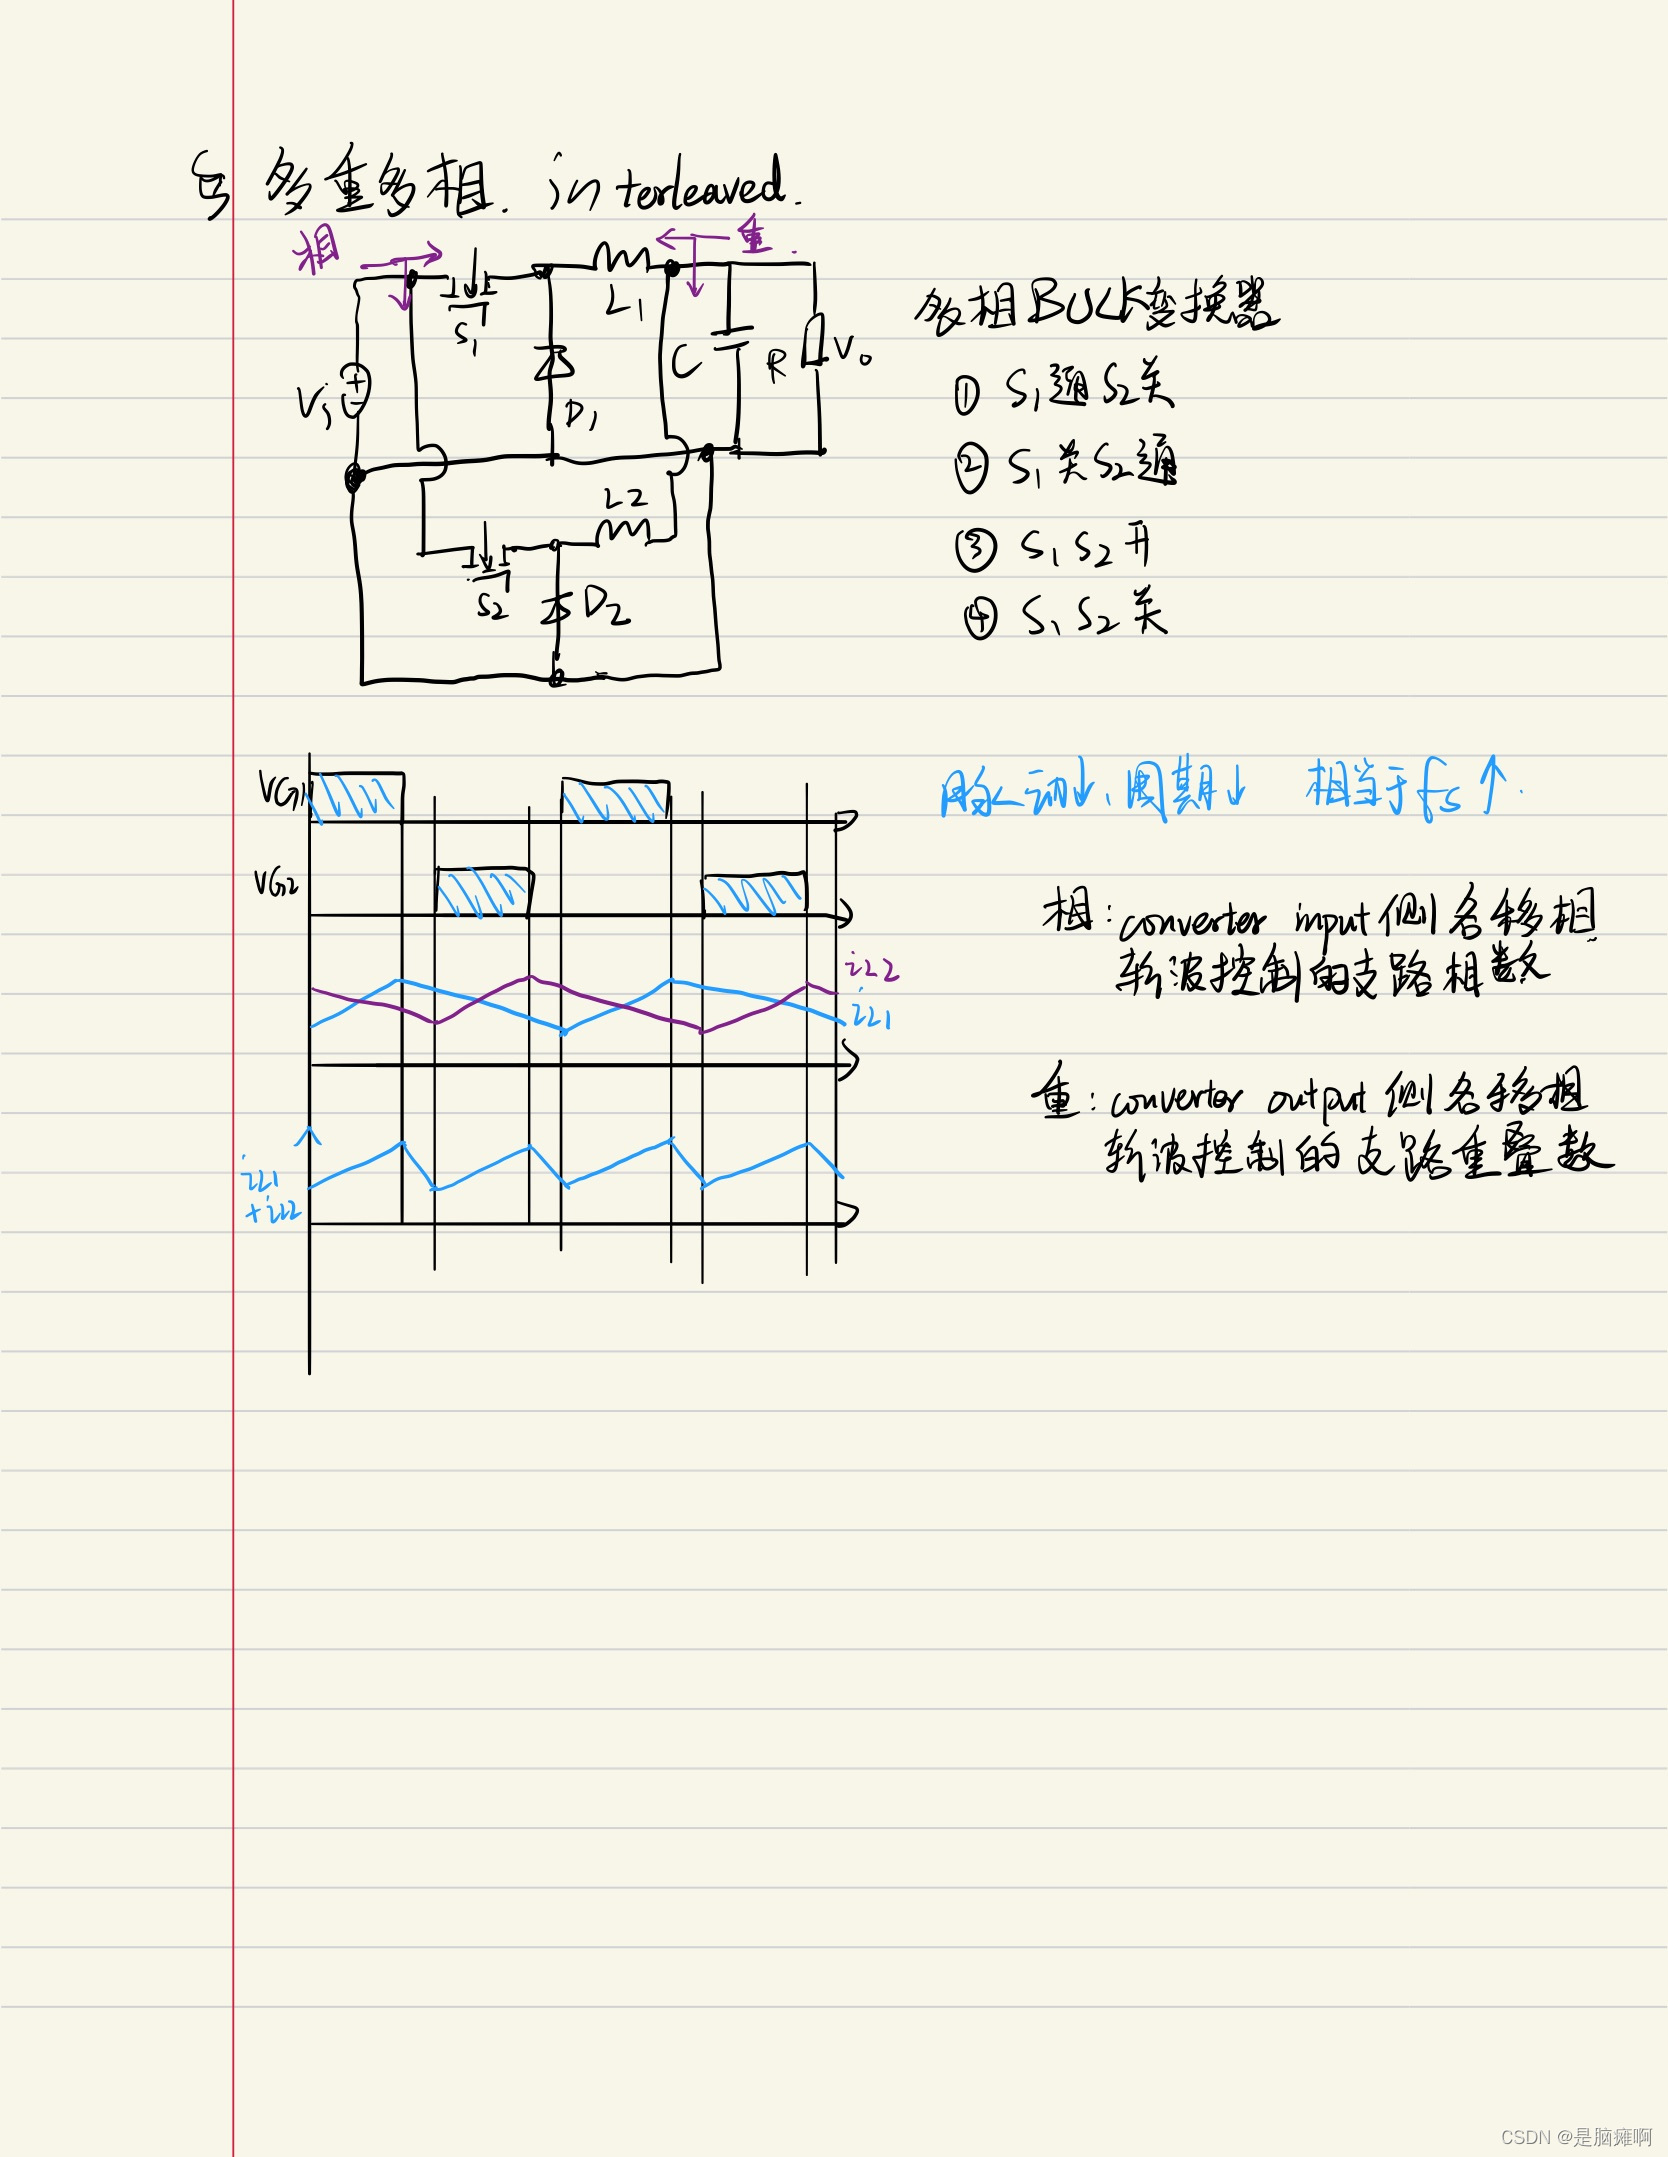 § 多重多相. interleaved.
相
重.
S1
L1
Vs
+
-
D1
C
R
Vo
L2
S2
D2
多相BUCK变换器
① S1通S2关
② S1关S2通
③ S1 S2开
④ S1 S2关
VG1
VG2
iL2
iL1
iL1
+iL2
脉动↓、周期↓ 相当于fs↑.
相: converter input侧各移相
斩波控制的支路相数
重: converter output侧各移相
斩波控制的支路重叠数
CSDN @是脑瘫啊